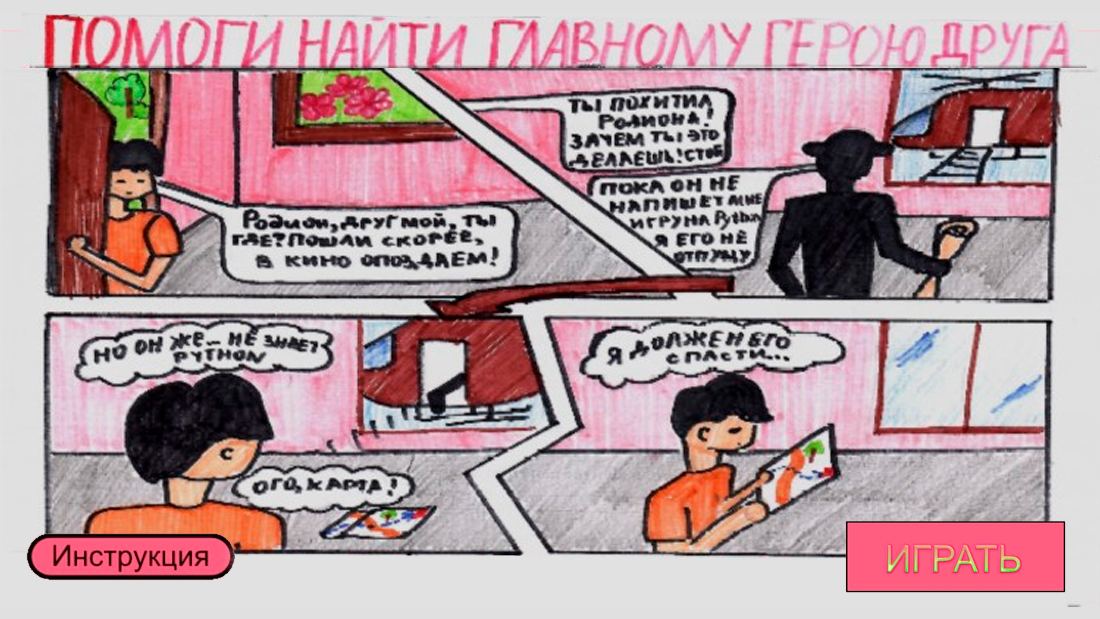 ПОМОГИ НАЙТИ ГЛАВНОМУ ГЕРОЮ ДРУГА
Родион, друг мой, ты
где? Пошли скорее,
в кино опоздаем!
Ты похитил
Родиона!
Зачем ты это
делаешь! Стой
Пока он не
напишет мне
игру на Python
я его не
отпущу
Но он же... не знает
Python
Ого, карта!
Я должен его
спасти...
Инструкция
ИГРАТЬ